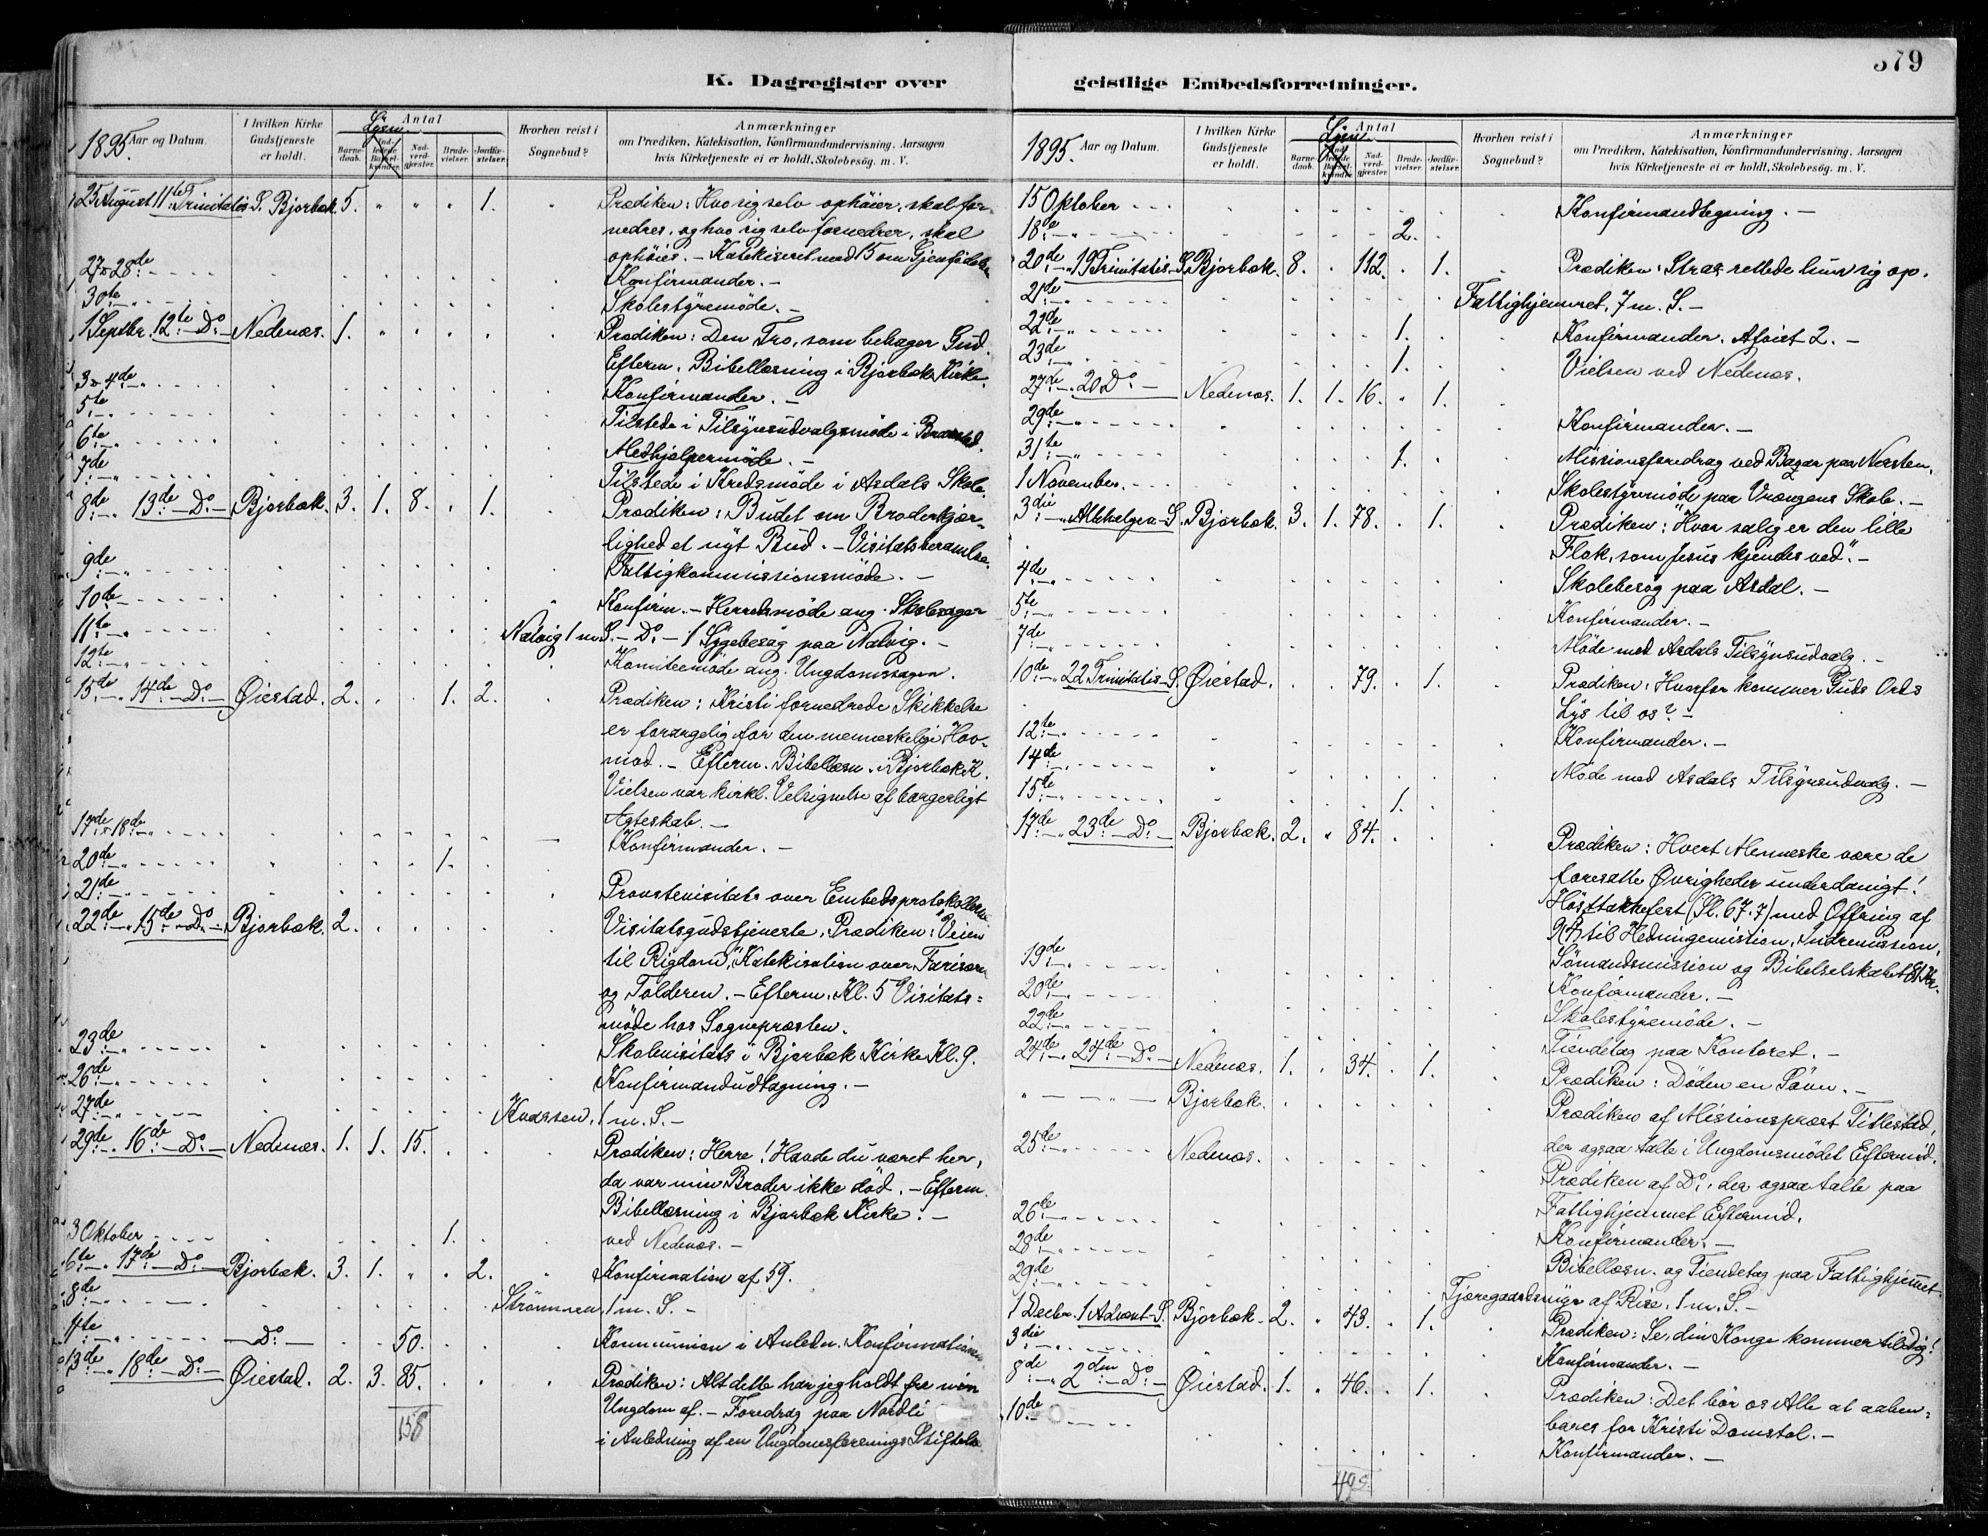 K. Dagregister over
1895. Aar og Datum.
I hvilken Kirke Gudstjeneste er holdt.
Antal
Barnedaab.
Nadverdgjester.
Brudevielser.
Jordfæstelser.
Hvorhen reist i Sognebud?
Anmærkninger
om Prædiken, Katekisation, Konfirmandundervisning. Aarsagen
hvis Kirketjeneste ei er holdt, Skolebesøg. m. V.
25 August 11te Trinitatis S. Bjorbæk. 5. " " " 1. " Prædiken: Hvo sig selv ophøier, skal for-
nedres, og hvo sig selv fornedrer, skal
ophøies. – Katekiseret med 15 om Gjenfødelse
27 & 28de Konfirmander. –
30te Skolestyremøde. –
1 Septbr. 12te Do Nedenæs. 1. Prædiken: Den Tro, som behager Gud.
Efterm. Bibellæsning i Bjorbæk Kirke.
3 & 4de Konfirmander. –
5te Tilstede i Tilsynsudvalgsmøde i
6te Medhjælpermøde. –
7de Tilstede i Kredsmøde i Asdals Skole.
8de 13de Do Bjorbæk. 3. 1. 8. 1. Prædiken: Budet om Broderkjær-
lighed et nyt Bud. – Visitatsberamelse.
9de Fattigkommissionsmøde. –
10de Konfirm. – Herredsmøde ang. Skolesager
11te Natvig 1 m. S. – Do – 1 Sygebesøg paa Natvig. –
12te Komiteemøde ang. Ungdomssagen.
15de 14de Do Øiestad. 2. 1. 2. Prædiken: Kristi fornedrede Skikkelse
er forargelig for den menneskelige Hov-
mod. – Efterm. Bibellæsn. i Bjorbæk K.
Vielsen var kirkl. Velsignelse af borgerligt
Ægteskab. –
17 & 18de Konfirmander. –
20de 1.
21de Provstevisitats over Embedsprotokollerne
22de 15de Do Bjorbæk. 2. Visitatsgudstjeneste. Prædiken: "Veien
til Rigdom", Katekisation over Farisæeren
og Tolderen. – Efterm. Kl. 5 Visitats-
møde hos Sognepræsten.
23de Skolevisitats i Bjorbæk Kirke Kl. 9.
26de Konfirmandudtagning. –
27de 1 m. S. –
29de 16de Do Nedenæs. 1. 1. 15. Prædiken: Herre! Havde du været her,
da var min Broder ikke død. – Efterm.
Bibellæsning i Bjorbæk Kirke. –
3 Oktober 1. ved Nedenæs. –
6te 17de Do Bjorbæk. 3. 1. " " 2. Konfirmation af 59.
8de Strømmen, 1 m. S. –
11te Do 50. Kommunion i Anledn. Konfirmationen
13de 18de Do Øiestad. 2. 3. 85. Prædiken: Alt dette har jeg holdt fra min
Ungdom af. – Foredrag paa Nordli
i Anledning af en Ungdomsforenings Stiftelse
158
geistlige Embedsforretninger.
379
1895. Aar og Datum.
I hvilken Kirke Gudstjeneste er holdt.
Antal
Barnedaab.
Nadverdgjester.
Brudevielser.
Jordfæstelser.
Hvorhen reist i Sognebud?
Anmærkninger
om Prædiken, Katekisation, Konfirmandundervisning. Aarsagen
hvis Kirketjeneste ei er holdt, Skolebesøg. m. V.
15 Oktober Konfirmandtegning. –
18de 2.
20de 19 Trinitatis S. Bjorbæk. 8. 112. 1. Prædiken: Strax rettede hun sig op.
21de Fattighjemmet, 7 m. S. –
22de 1. Konfirmander. Afviet 2. –
23de 1. Vielsen ved Nedenæs.
27de 20 Do Nedenæs. 1. 1. 16. " 1.
29de Konfirmander. –
31te 1. Missionsforedrag ved Bazar paa Næsten.
1 November. Skolestyremøde paa Vrængens Skole. –
3die Allehelgen S. Bjorbæk. 3. 1. 78. 1. Prædiken: "Hvor salig er den lille
Flok, som Jesus kjendes ved". –
4de Skolebesøg paa Asdal. –
5te Konfirmander. –
7de Møde med Asdals Tilsynsudvalg. –
10de 22 Trinitatis S. Øiestad. 79. 1. Prædiken: Hvorfor kommer Guds Ords
Lys til os? –
12te Konfirmander. –
14de Møde med Asdals Tilsynsudvalg. –
15te 1.
17de 23de Do Bjorbæk. 2. " 84. Prædiken: Hvert Menneske være de
foresatte Øvrigheder underdanigt!
Høsttakkefest (Sl. 67. 7) med Offring af
til Hedningemission, Indremission,
Sømandsmission og Bibelselskabet
19de Konfirmander. –
20de Skolestyremøde. –
22de Tiendetag paa Kontoret. –
24de 24de Do Nedenæs. 1. 34. 1. Prædiken: Døden en Søvn. –
" Bjorbæk. Prædiken af Missionsprest Titlestad,
der ogsaa talte i Ungdomsmødet Eftermid.
25de Nedenæs. Prædiken af Do, der ogsaa talte paa
Fattighjemmet Eftermid.
26te Konfirmander. –
28de Bibellæsn. og Tiendetag paa Fattighjemmet.
29de Tjæregaardsmyr af Rise, 1 m. S. –
1 Decbr. 1 Advent S. Bjorbæk. 2. 43. 1. Prædiken: Se, din Konge kommer til dig!
3die Konfirmander. –
8de 2den Do Øiestad. 1. 46. 1. Prædiken: Det bør os Alle at aaben-
bares for Kristi Domstol. –
10de Konfirmander. –